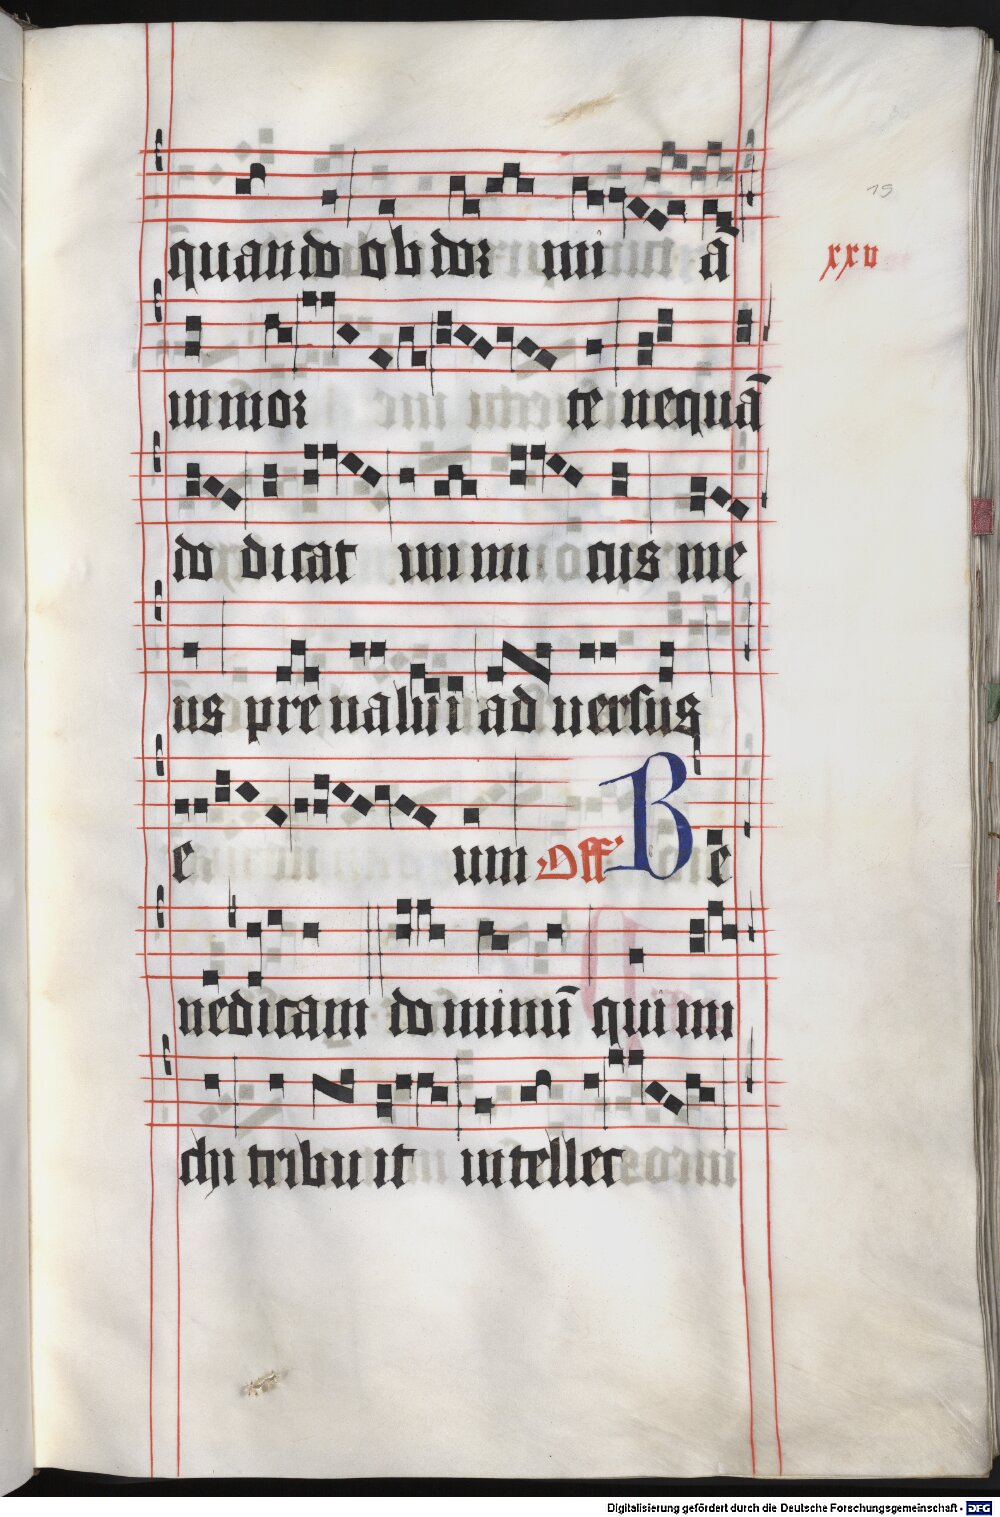 quando ob dor mi ā
xxv
19
in mor te nequā
do dicat inimi cus me
us pre valui ad versus
e um Off B ē
nedicam do minū qui mi
chi tribu it intellec
Digitalisierung gefördert durch die Deutsche Forschungsgemeinschaft - DFG